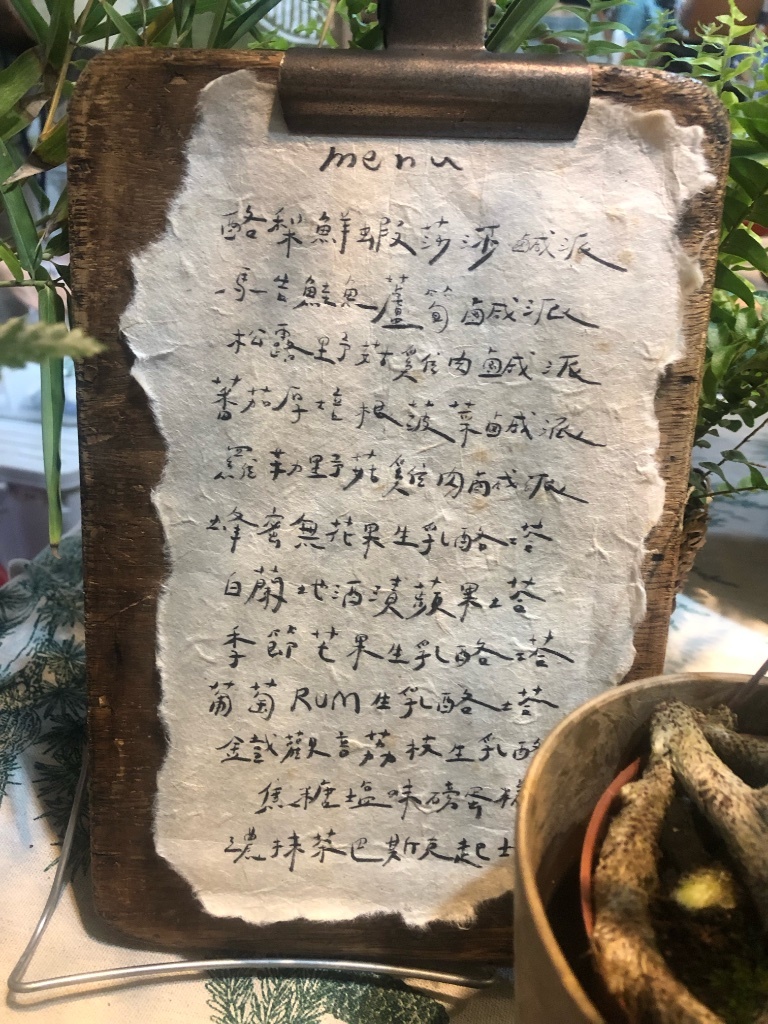 menu
酪梨鮮蝦莎莎鹹派
馬告鮭魚蘆筍鹹派
松露野菇雞肉鹹派
蕃茄厚培根菠菜鹹派
羅勒野菇雞肉鹹派
蜂蜜無花果生乳酪塔
白蘭地酒漬蘋果塔
季節芒果生乳酪塔
葡萄RUM生乳酪塔
金鐵觀音荔枝生乳酪
焦糖塩味磅蛋糕
濃抹茶巴斯克起士